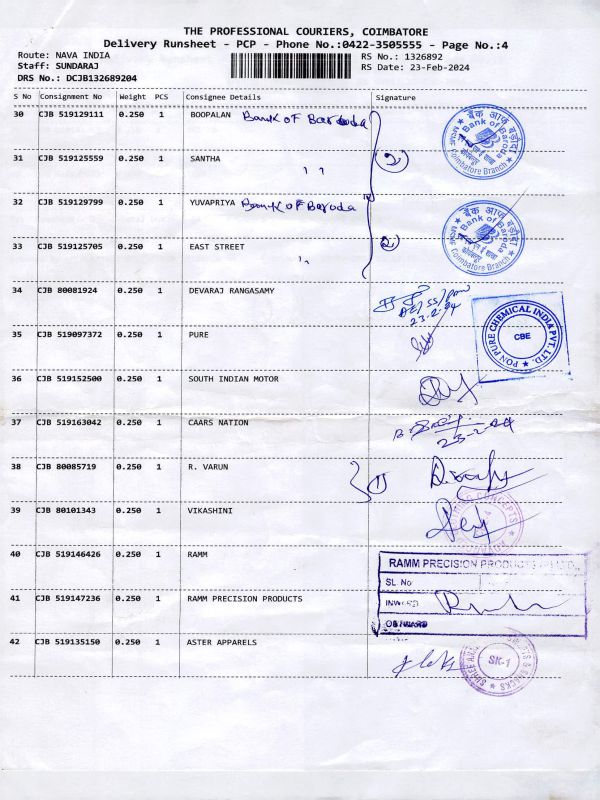 THE PROFESSIONAL COURIERS, COIMBATORE
Delivery Runsheet - PCP - Phone No.:0422-3505555 - Page No.:4
Route: NAVA INDIA
RS No.: 1326892
Staff: SUNDARAJ
RS Date: 23-Feb-2024
DRS No.: DCJB132689204
S No Consignment No Weight PCS Consignee Details Signature
30 CJB 519129111 0.250 1 BOOPALAN Bank of Baroda
बैंक ऑफ़ बड़ौदा
Bank of Baroda
Coimbatore Branch
31 CJB 519125559 0.250 1 SANTHA ,, 2
32 CJB 519129799 0.250 1 YUVAPRIYA Bank of Baroda
बैंक ऑफ़ बड़ौदा
Bank of Baroda
Coimbatore Branch
33 CJB 519125705 0.250 1 EAST STREET ,, 2
34 CJB 80081924 0.250 1 DEVARAJ RANGASAMY
23.2.24
PON PURE CHEMICAL INDIA PVT. LTD.
CBE
35 CJB 519097372 0.250 1 PURE
36 CJB 519152500 0.250 1 SOUTH INDIAN MOTOR
37 CJB 519163042 0.250 1 CAARS NATION
23-2-24
38 CJB 80085719 0.250 1 R. VARUN 1
39 CJB 80101343 0.250 1 VIKASHINI
CONCEPTS
40 CJB 519146426 0.250 1 RAMM
RAMM PRECISION PRODUCTS LTD.,
SL. No
41 CJB 519147236 0.250 1 RAMM PRECISION PRODUCTS
INWARD
OUTWARD
42 CJB 519135150 0.250 1 ASTER APPARELS
SK-1